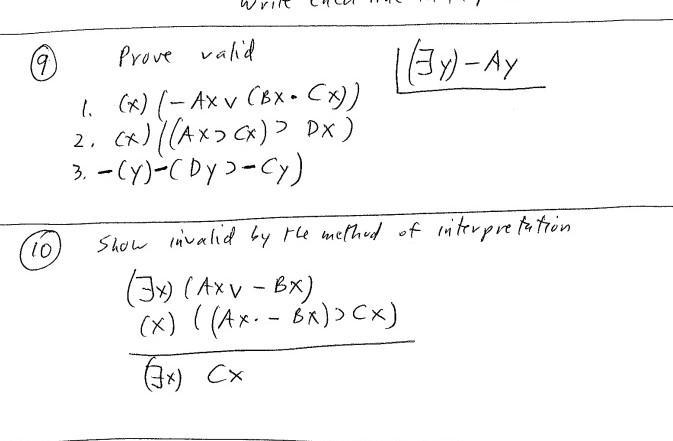 (9) Prove valid
1. (x) (-Ax v (Bx • Cx)) |(∃y) - Ay
2. (x) ((Ax ⊃ Cx) ⊃ Dx)
3. -(y)-(Dy ⊃ -Cy)
(10) Show invalid by the method of interpretation
(∃x) (Ax v - Bx)
(x) ((Ax. - Bx) ⊃ Cx)
(∃x) Cx